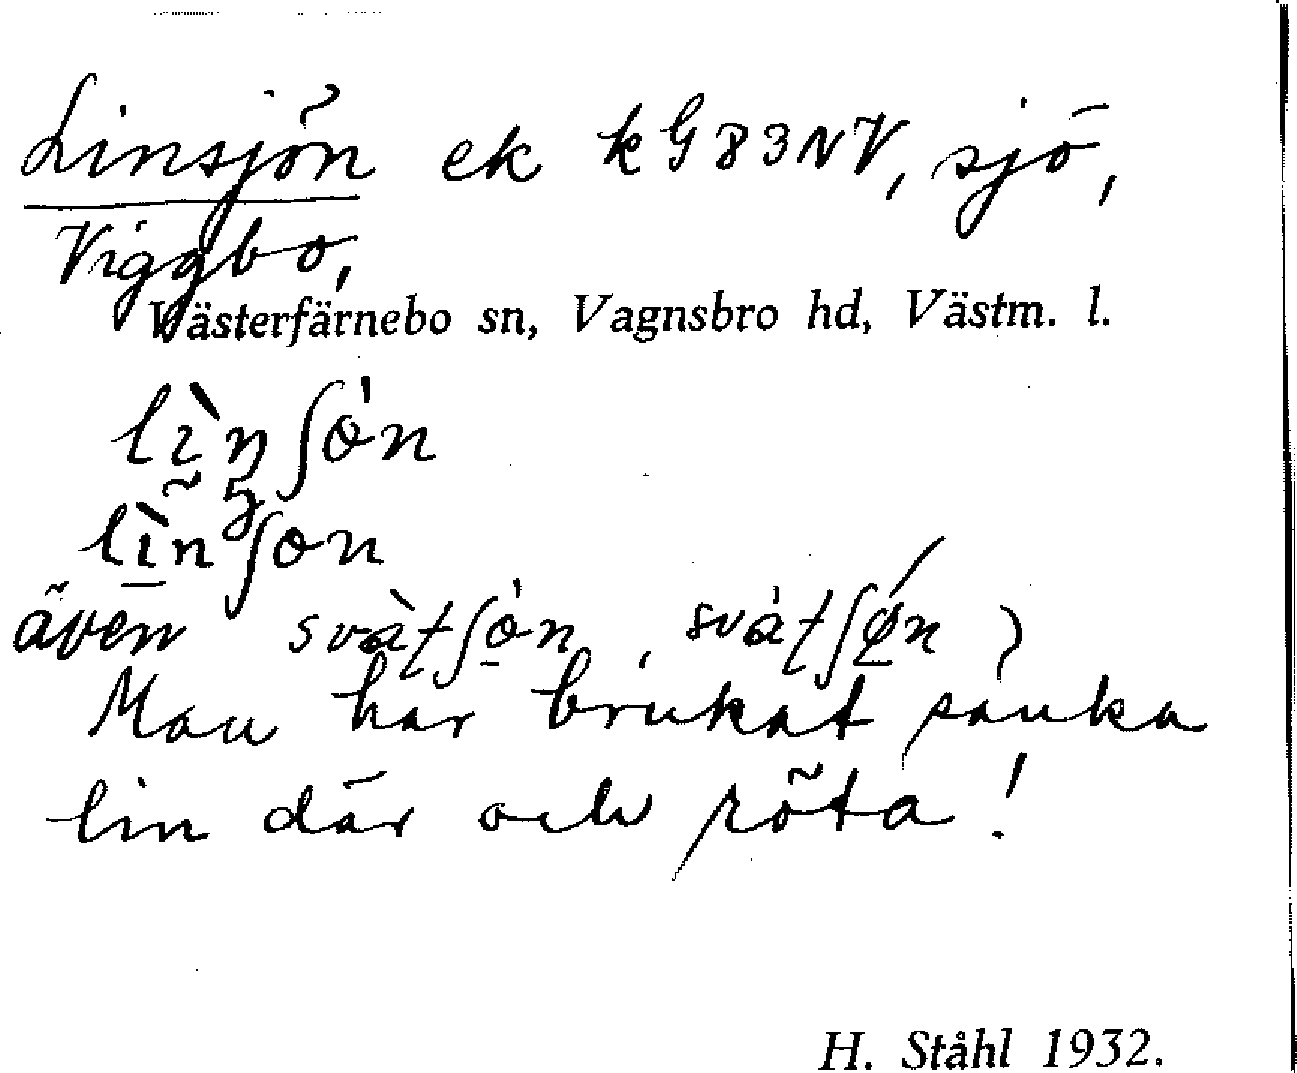 Linsjön ek kG83NV, sjö,
Viggbo,
Västerfärnebo sn, Vagnsbro hd, Västm. l.
även
Man har brukat sänka
lin där och röta!
H. Ståhl 1932.